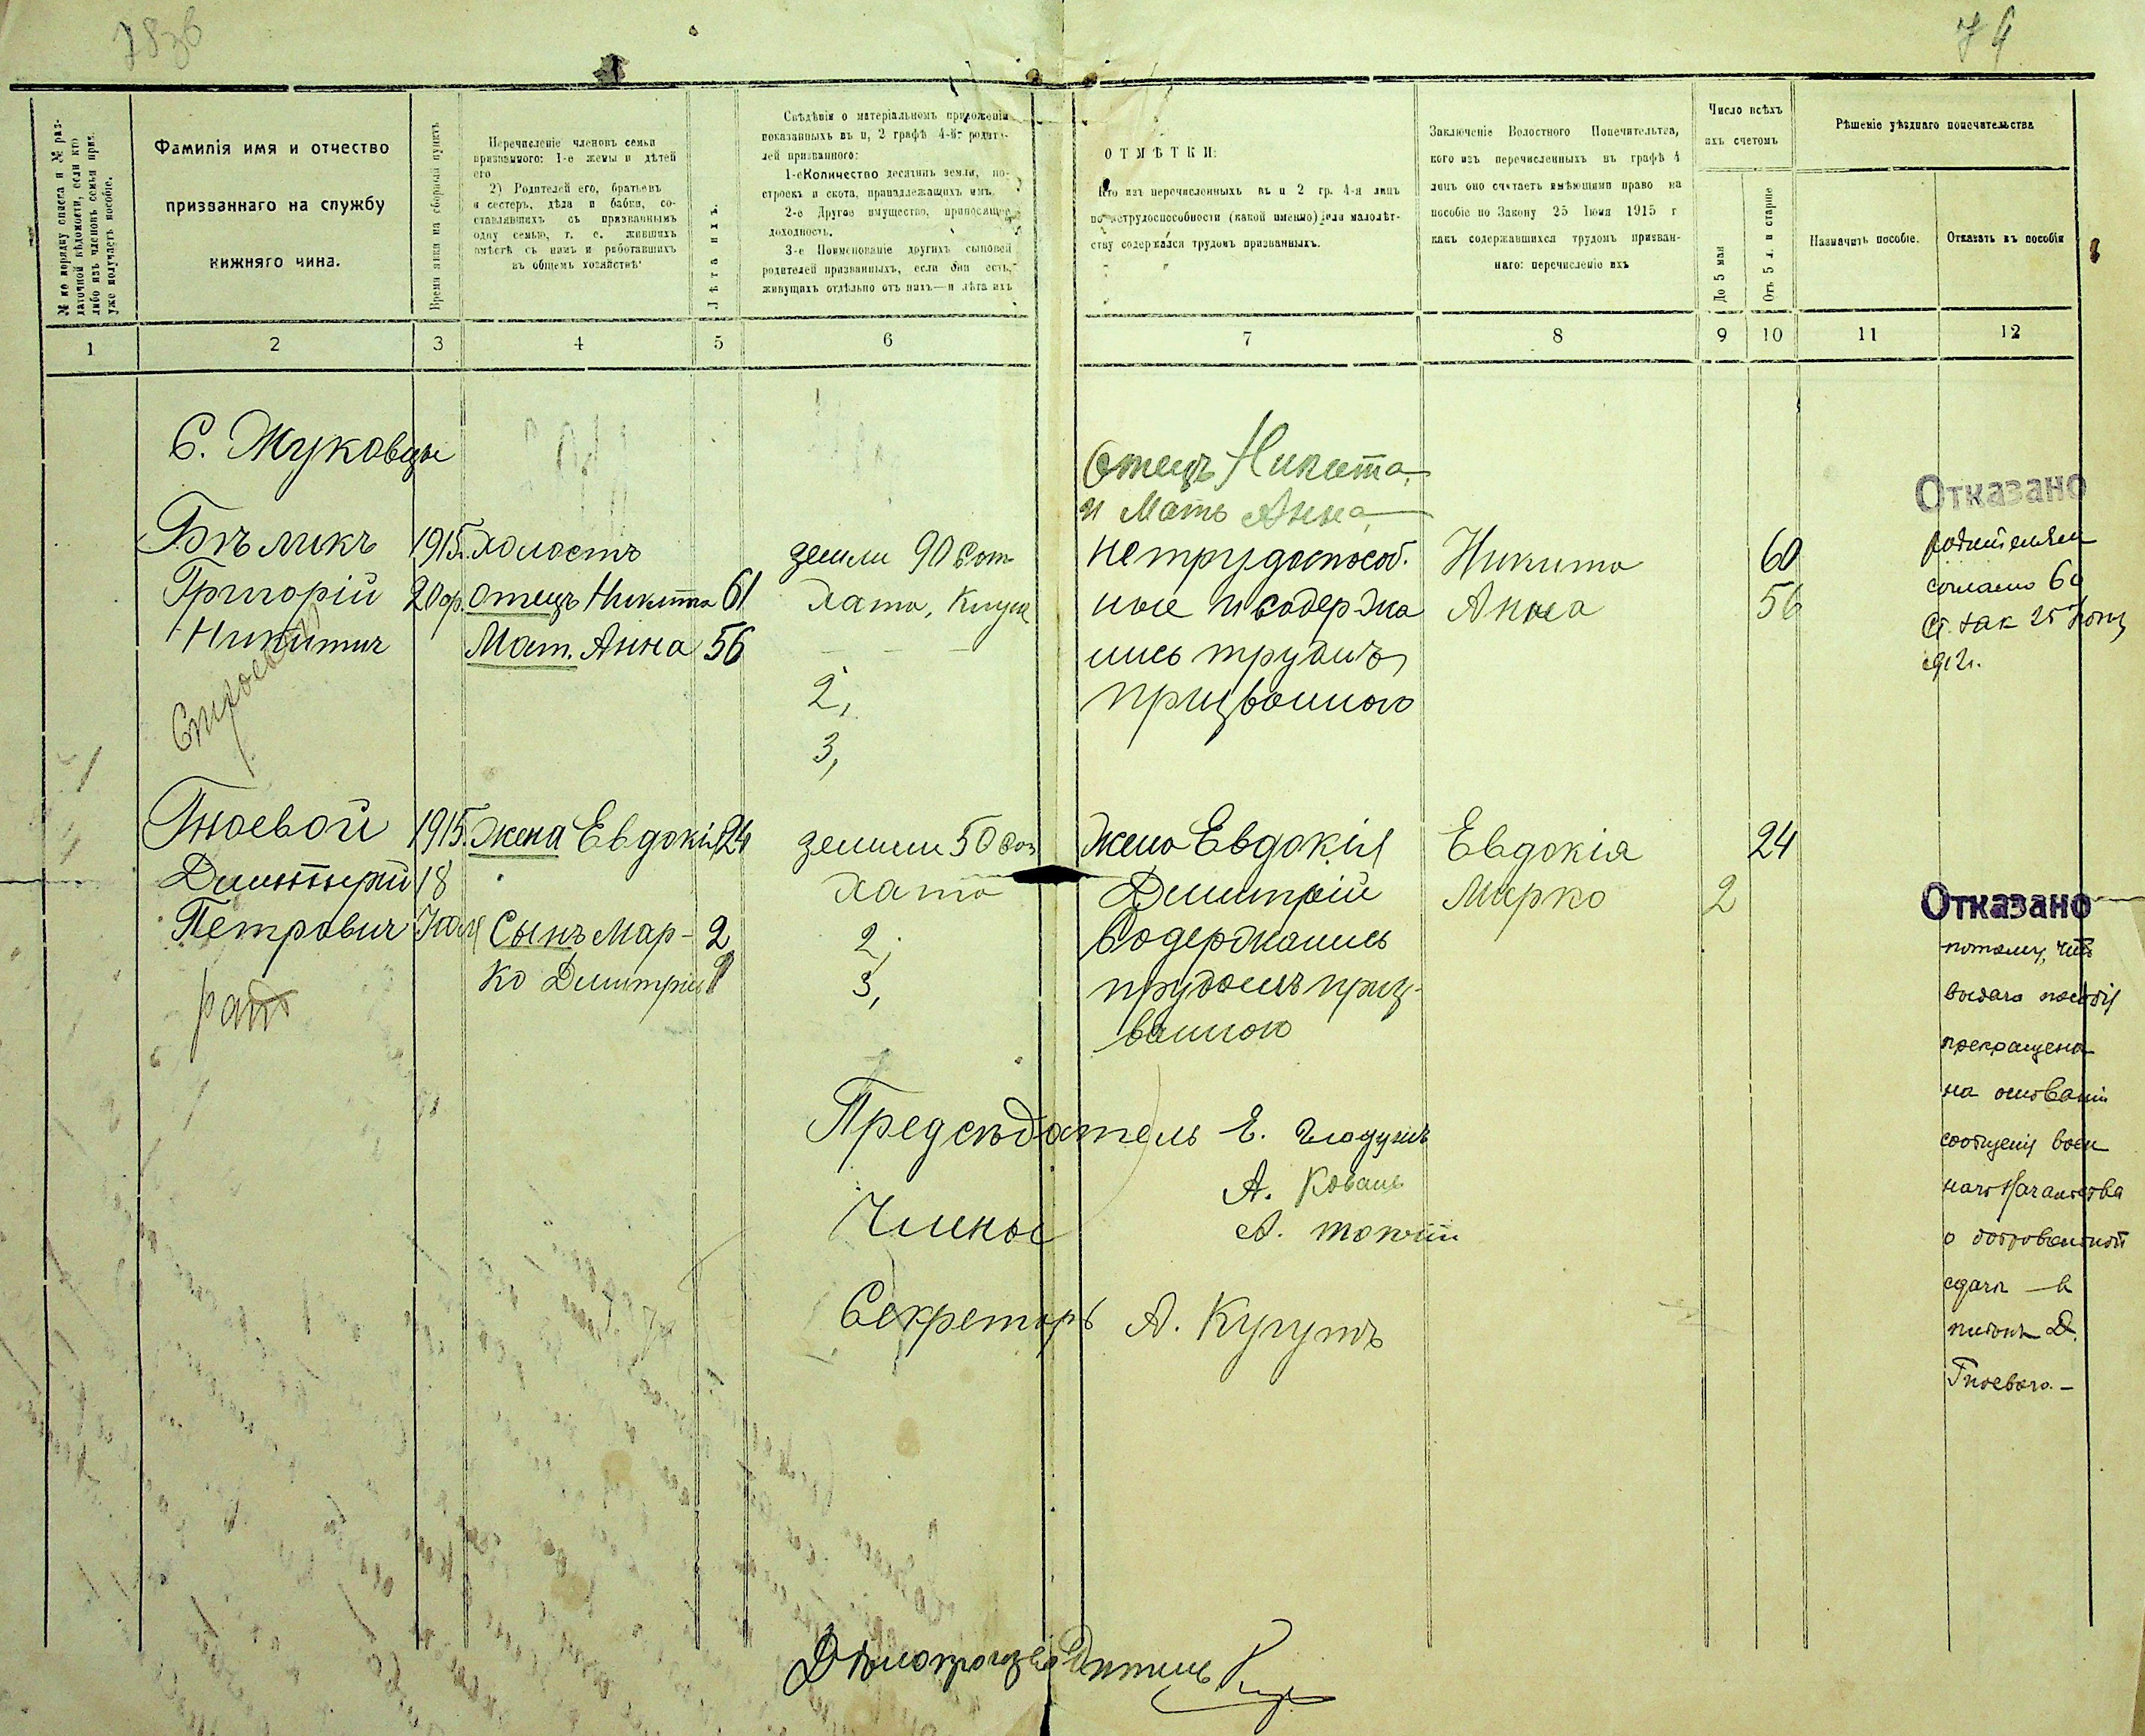 74
№ по порядку списка и № раз-
даточной вѣдомости, если кто
либо изъ членовъ семьи приз.
уже получаетъ пособіе.
Фамилія имя и отчество
призваннаго на службу
нижняго чина.
Время явки на сборный пунктъ
Перечисленіе членовъ семьи
призваннаго: 1-е жены и дѣтей
его
2) Родителей его, братьевъ
и сестеръ, дѣда и бабки, со-
ставлявшихъ съ призваннымъ
одну семью, т. е. жившихъ
вмѣстѣ съ нимъ и работавшихъ
въ общемъ хозяйствѣ
Лѣта ихъ.
Свѣдѣнія о матеріальномъ приложеніи
показанныхъ въ п, 2 графѣ 4-й родите-
лей призванного:
1-е Количество десятинъ земли, по-
строекъ и скота, принадлежащихъ имъ.
2-е Другое имущество, приносящее
доходность.
3-е Поименованіе другихъ сыновей
родителей призванныхъ, если они есть,
живущихъ отдѣльно отъ нихъ—и лѣта ихъ
ОТМѢТКИ:
Кто изъ перечисленныхъ въ п 2 гр. 4-я лицъ
по нетрудоспособности (какой именно) или малолѣт-
ству содержался трудомъ призванныхъ.
Заключеніе Волостного Попечительтва,
кого изъ перечисленныхъ въ графѣ 4
лицъ оно считаетъ имѣющими право на
пособіе по Закону 25 Іюня 1915 г
какъ содержавшихся трудомъ призван-
наго: перечисленіе ихъ
Число всѣхъ
ихъ счетомъ
До 5 мая
Отъ 5 л. и старше
Рѣшеніе уѣзднаго попечительства
Назначить пособіе.
Отказать въ пособіи
1 2 3 4 5 6 7 8 9 10 11 12
С. Жуковцы
Отецъ Никита
и Мать Анна
Отказано
Бѣликъ 1915г. холостъ земли 90 сот нетрудоспособ. Никита 60 родителям
Григорій 20 отецъ Никита 61 хата, ные и содержа Анна 56 согласно
Никитич Мат. Анна 56 лись трудомъ Ст. Зак 25 Іюня
2, призванного 1912г.
3,
Гноевой 1915. Жена Евдокія 24 земли 50 сот Жена Евдокія Евдокія 24
Димитрій 18 хата Димитрій Марко 2 Отказано
Петровичъ Іюля Сынъ Мар- 2 2, содержались потому, что
ко Димитріев 3, трудомъ приз- выдача пособія
ванного прекращена
на основаніи
Предсѣдатель Е. сообщенія воен
А. Коваль наго Начальства
Члены А. о добровольной
сдачѣ въ
Секретарь А. Кугутъ плѣнъ Д.
Гноевого.-
Дѣлопроизводитель